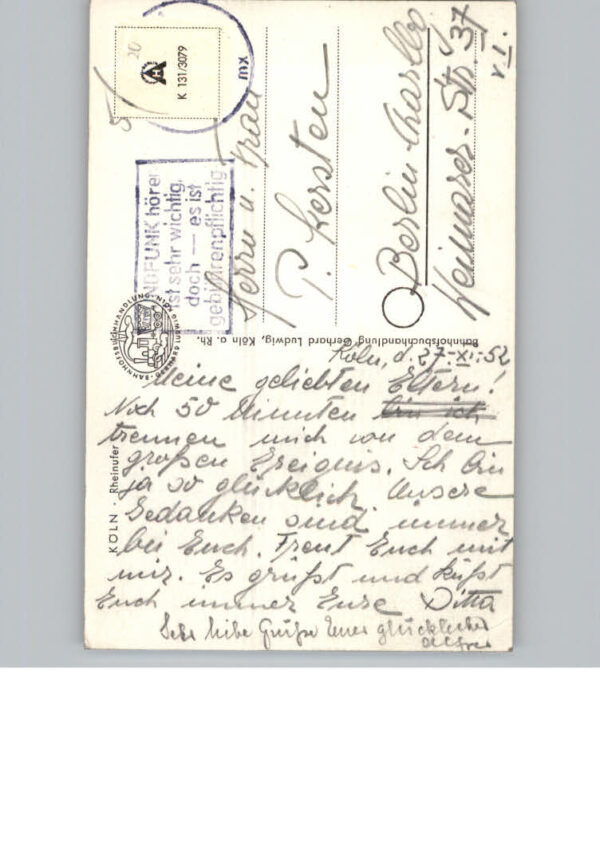 K 131/3079
mx
20
NDFUNK hören
ist sehr wichtig,
doch — es ist
gebührenpflichtig
Herrn u. Frau
P. Gersten
Berlin Charlbg
Weimarer. Str. 37
v. I.
BAHNHOFSBUCHHANDLUNG GERHARD LUDWIG KÖLN
Bahnhofsbuchhandlung Gerhard Ludwig, Köln a. Rh.
KÖLN · Rheinufer
Köln, d. 27.XI.52
Meine geliebten Eltern!
Noch 50 Minuten bin ich
trennen mich von dem
großen Ereignis. Ich bin
ja so glücklich. Unsere
Gedanken sind immer
bei Euch. Freut Euch mit
mir. Es grüßt und küßt
Euch immer Eure Ditta
Sehr liebe Grüße Euer glücklicher